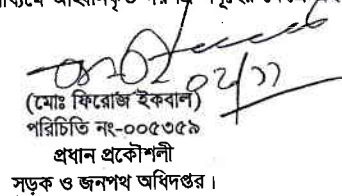 ০২/১১
(মোঃ ফিরোজ ইকবাল)
পরিচিতি নং-০০৫৩৫৯
প্রধান প্রকৌশলী
সড়ক ও জনপথ অধিদপ্তর।